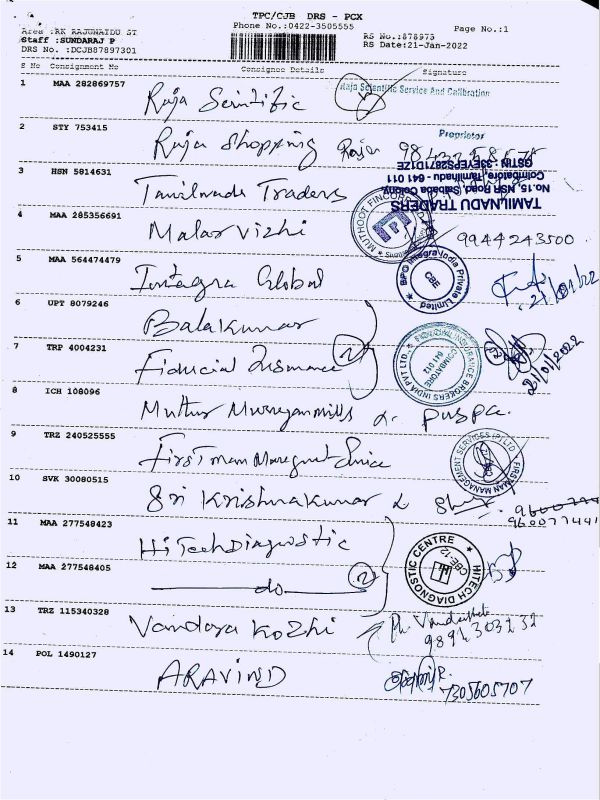 TPC/CJB DRS - PCX
Phone No.:0422-3505555
Page No.:1
Area :RK RAJUNAIDU ST
Staff :SUNDARAJ P
DRS No. :DCJB87897301
RS No.:878973
RS Date:21-Jan-2022
S No Consignment No Consignee Details Signature
1 MAA 282869757 Raja Scintific
Raja Scientific Service And Calibration
Proprietor
2 STY 753415 Raja Shopping Raja
3 HSN 5814631 Tamilnadu Traders
TAMILNADU TRADERS
No.15, NSR Road, Saibaba Colony,
Coimbatore, Tamilnadu - 641 011
4 MAA 285356691 Malar Vizhi 9944243500
MUTHOOT FINCORP
5 MAA 564474479 Integra Global
BPO Integra India Private Limited
CBE
21/01/22
6 UPT 8079246 Balakumar
7 TRP 4004231 Fiducial Insurance 2
INSURANCE BROKERS INDIA PVT LTD.,
COIMBATORE
641 012
21/01/2022
8 ICH 108096 Muthur Murugan mills
9 TRZ 240525555 First man
FIRSTMAN MANAGEMENT SERVICES (P) LTD
10 SVK 30080515 Sri Krishnakumar
11 MAA 277548423 HiTech Diagnostic
12 MAA 277548405 do 2
HITECH DIAGNOSTIC CENTRE
CBE-12
13 TRZ 115340328 Vandaya Kozhi
14 POL 1490127 ARAVIND
7305605707